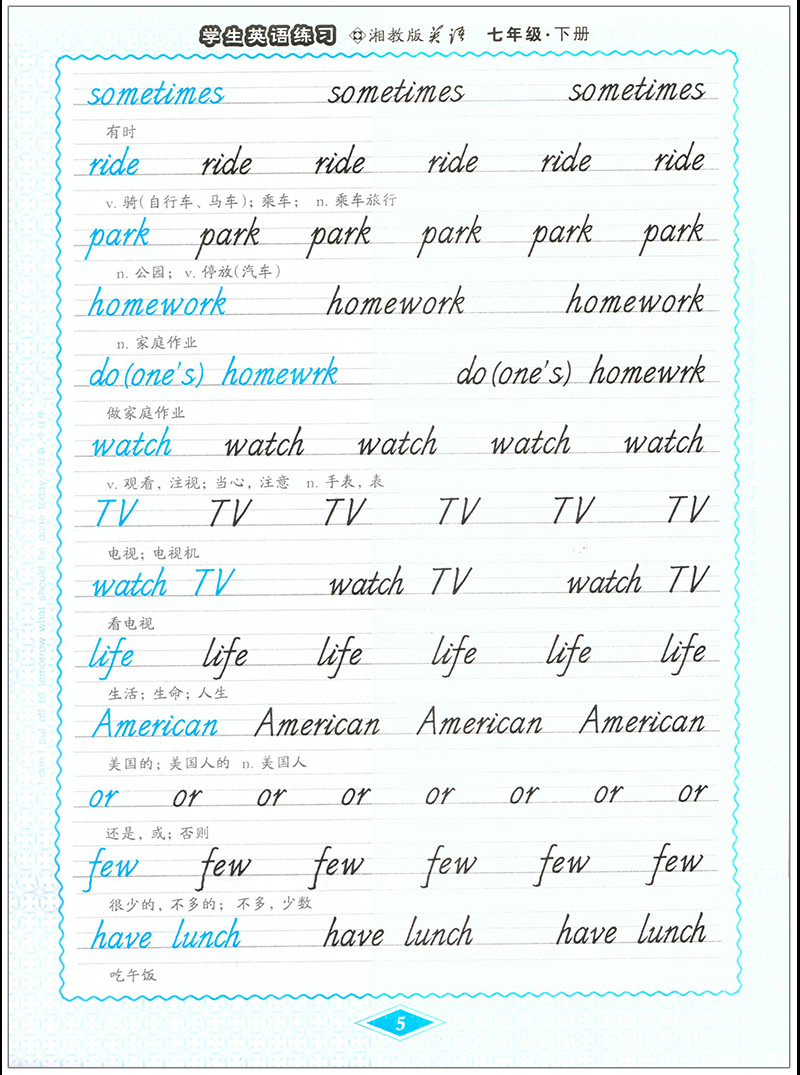 学生英语练习 湘教版英语 七年级·下册
sometimes sometimes sometimes
有时
ride ride ride ride ride ride
v. 骑(自行车、马车)；乘车； n. 乘车旅行
park park park park park park
n. 公园； v. 停放(汽车)
homework homework homework
n. 家庭作业
do(one's) homewrk do(one's) homewrk
做家庭作业
watch watch watch watch watch
v. 观看，注视；当心，注意 n. 手表，表
TV TV TV TV TV TV
电视；电视机
watch TV watch TV watch TV
看电视
life life life life life life
生活；生命；人生
American American American American
美国的；美国人的 n. 美国人
or or or or or or or or
还是，或；否则
few few few few few few
很少的，不多的； 不多，少数
have lunch have lunch have lunch
吃午饭
5